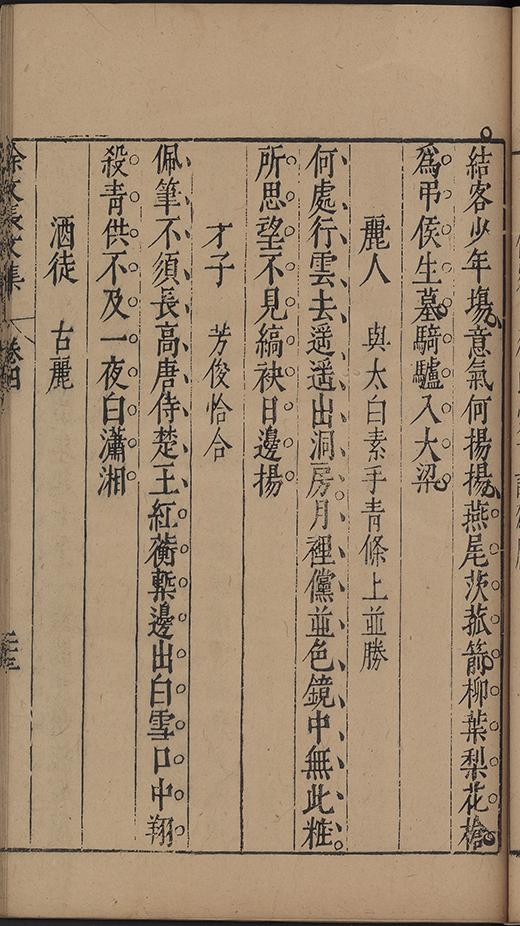 結客少年塲意氣何揚揚燕尾茨菰箭柳葉梨花槍
為弔侯生墓騎驢入大梁
麗人 與太白素手青條上並勝
何處行雲去遥遥出洞房月裡儻並色鏡中無此粧
所思望不見縞袂日邊揚
才子 芳俊恰合
佩筆不須長高唐侍楚王紅蘅槧邊出白雪口中翔
殺青供不及一夜白瀟湘
酒徒 古麗
徐文長文集 卷四